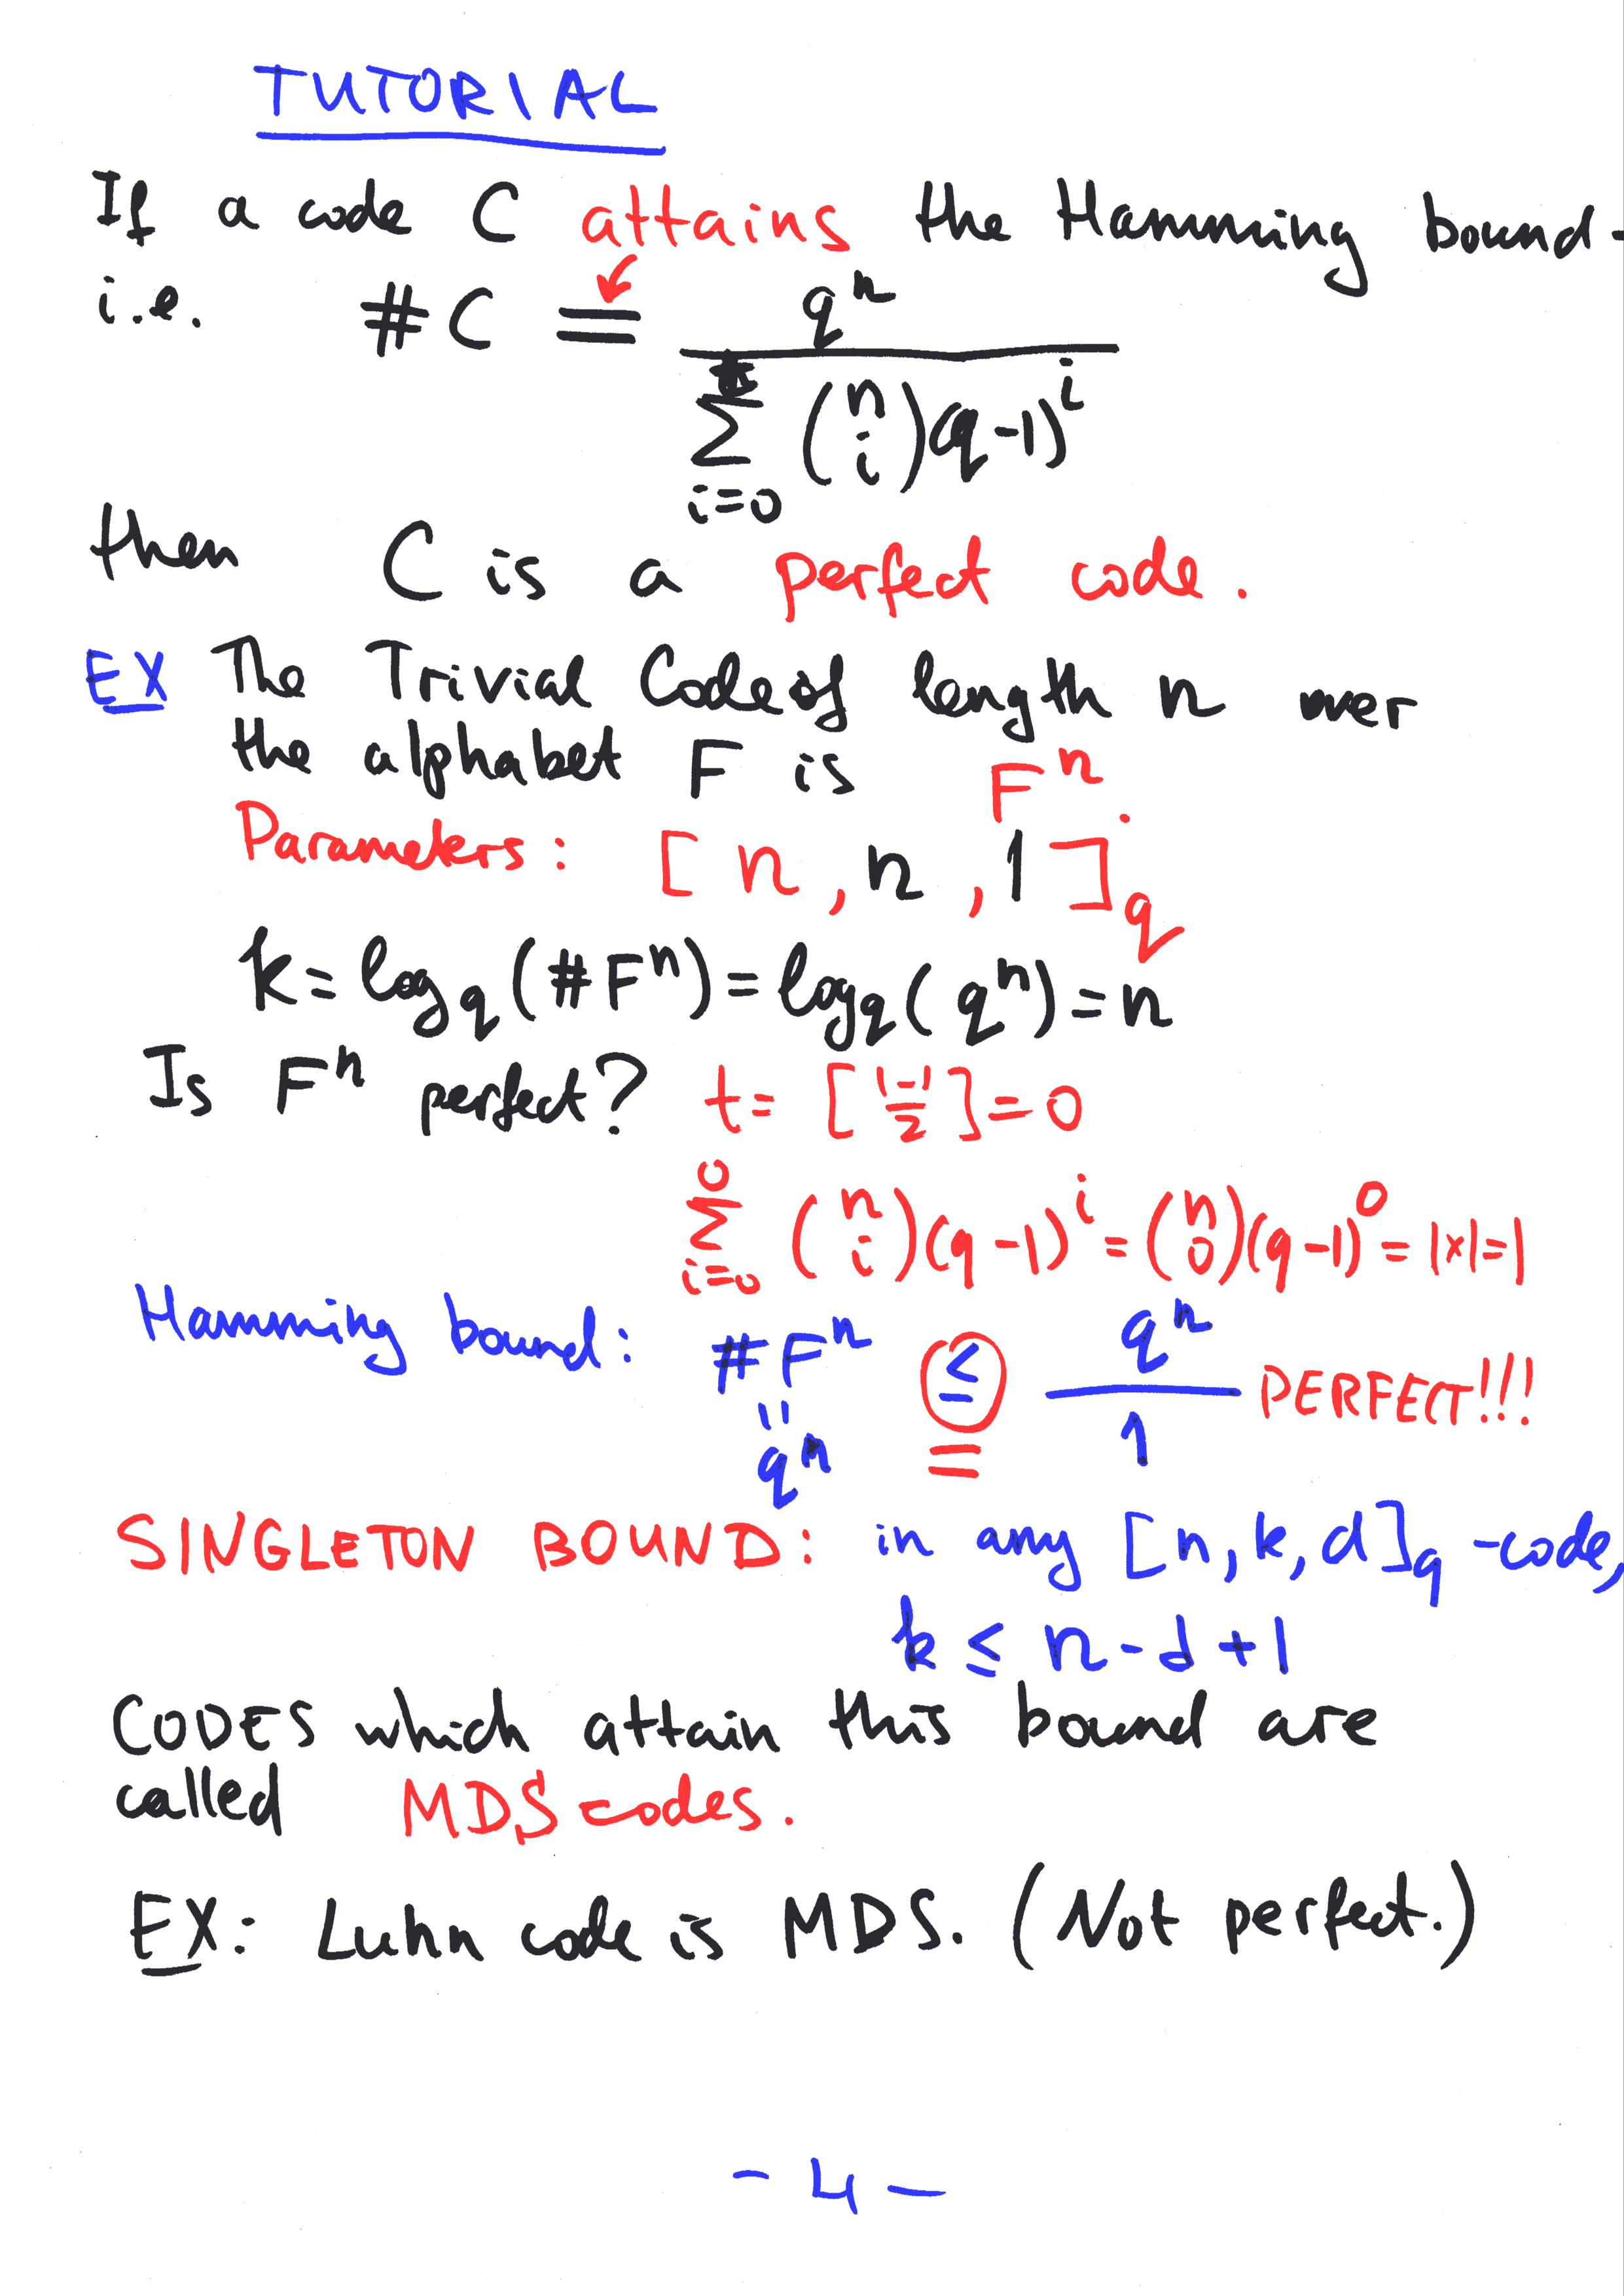 TUTORIAL
If a code C attains the Hamming bound -
i.e. #C = q^n / Σ_{i=0} (n i)(q-1)^i
then C is a perfect code.
EX The Trivial Code of length n over
the alphabet F is F^n.
Parameters: [n, n, 1]_q
k = log_q(#F^n) = log_q(q^n) = n
Is F^n perfect? t = [(1-1)/2] = 0
Σ_{i=0}^{0} (n i)(q-1)^i = (n 0)(q-1)^0 = 1×1=1
Hamming bound: #F^n ≤ q^n / 1 PERFECT!!!
= q^n =
SINGLETON BOUND: in any [n, k, d]_q -code,
k ≤ n-d+1
CODES which attain this bound are
called MDS codes.
EX: Luhn code is MDS. (Not perfect.)
- 4 -